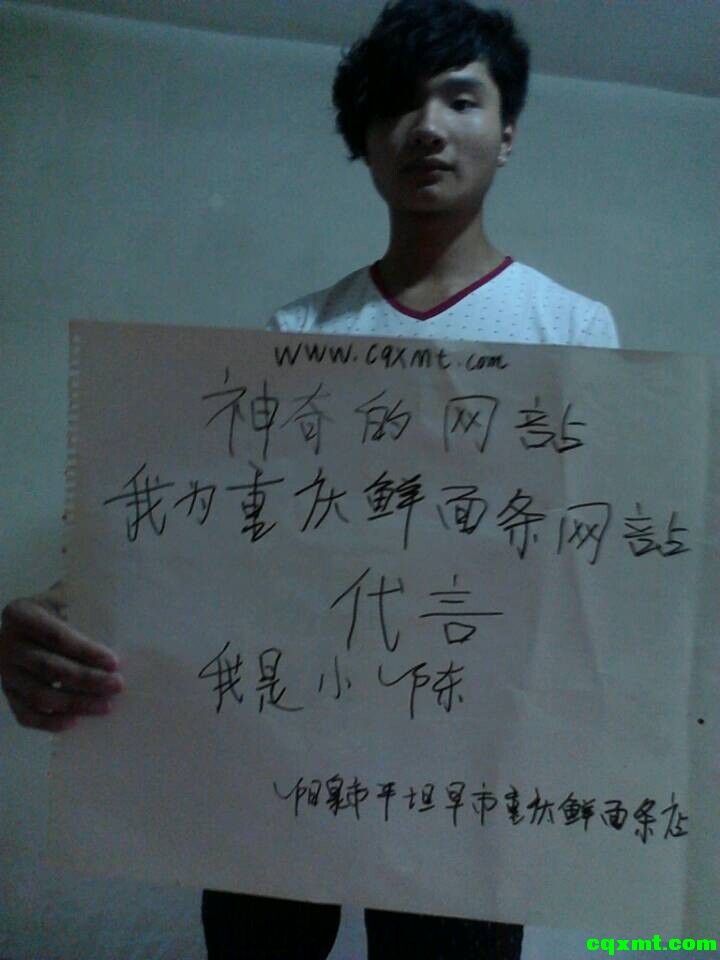 www.cqxmt.com
神奇的网站
我为重庆鲜面条网站
代言
我是小陈
阳泉市平坦早市重庆鲜面条店
cqxmt.com